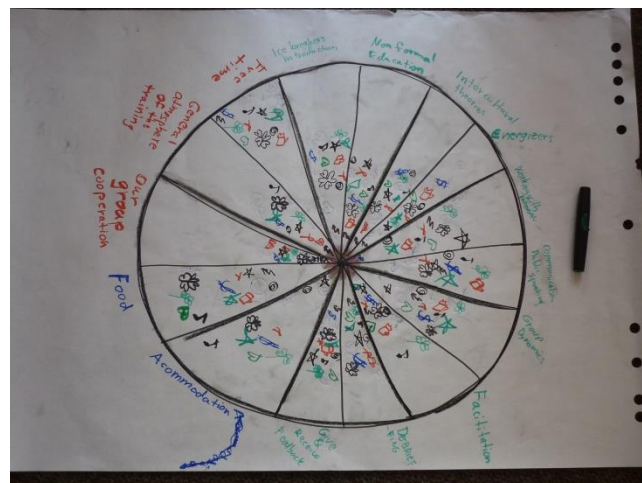 Ice breakers
Introduction
Non formal
Education
Intercultural
theories
Energizers
Communication
Public speaking
Group
Dynamics
Facilitation
Debriefing
Give &
Receive
Feedback
Acommodation
Food
Our
group
cooperation
General
atmosphere
of the
training
Free
time